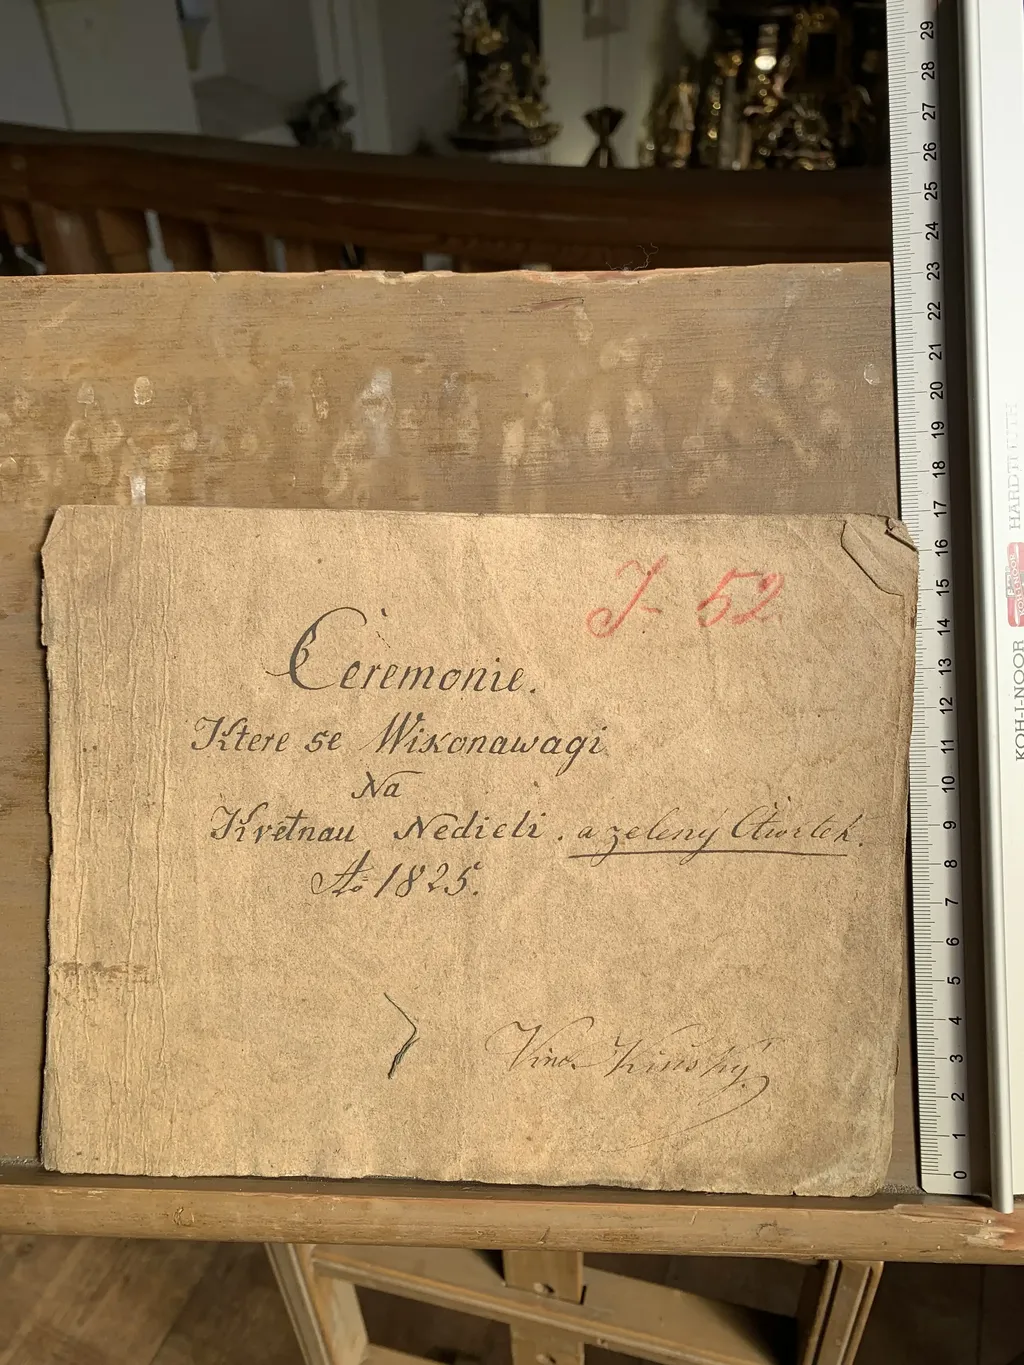 J- 52.
Ceremonie.
Ktere se Wikonawagi
Na
Květnau Nedieli. a zelený Čtwrtek.
Ao 1825.
Vinc. Kinský
29
28
27
26
25
24
23
22
21
20
19
18
17
16
15
14
13
12
11
10
9
8
7
6
5
4
3
2
1
0
KOH-I-NOOR HARDTMUTH
KOH-I-NOOR